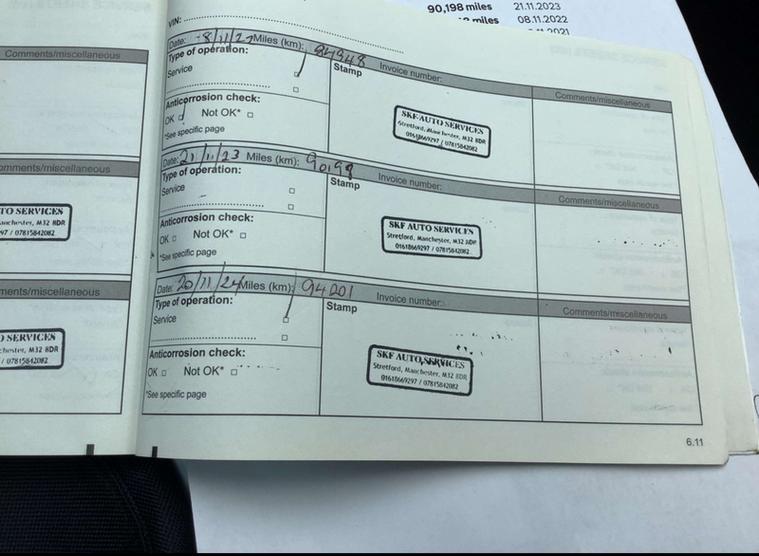 90,198 miles 21.11.2023
miles 08.11.2022
2021
VIN:
Comments/miscellaneous
Date: 8/11/22 Miles (km): 84948
Type of operation:
Service
Stamp
Invoice number:
Comments/miscellaneous
Anticorrosion check:
OK Not OK*
*See specific page
SKF AUTO SERVICES
Stretford, Manchester, M32 8DR
01618669297 / 07815842082
omments/miscellaneous
TO SERVICES
anchester, M32 8DR
97 / 07815842082
Date: 21/11/23 Miles (km): 90198
Type of operation:
Service
Stamp
Invoice number:
Comments/miscellaneous
Anticorrosion check:
OK Not OK*
*See specific page
SKF AUTO SERVICES
Stretford, Manchester, M32 8DR
01618669297 / 07815842082
ments/miscellaneous
O SERVICES
chester, M32 8DR
/ 07815842082
Date: 20/11/24 Miles (km): 94201
Type of operation:
Service
Stamp
Invoice number:
Comments/miscellaneous
Anticorrosion check:
OK Not OK*
*See specific page
SKF AUTO SERVICES
Stretford, Manchester, M32 8DR
01618669297 / 07815842082
6.11